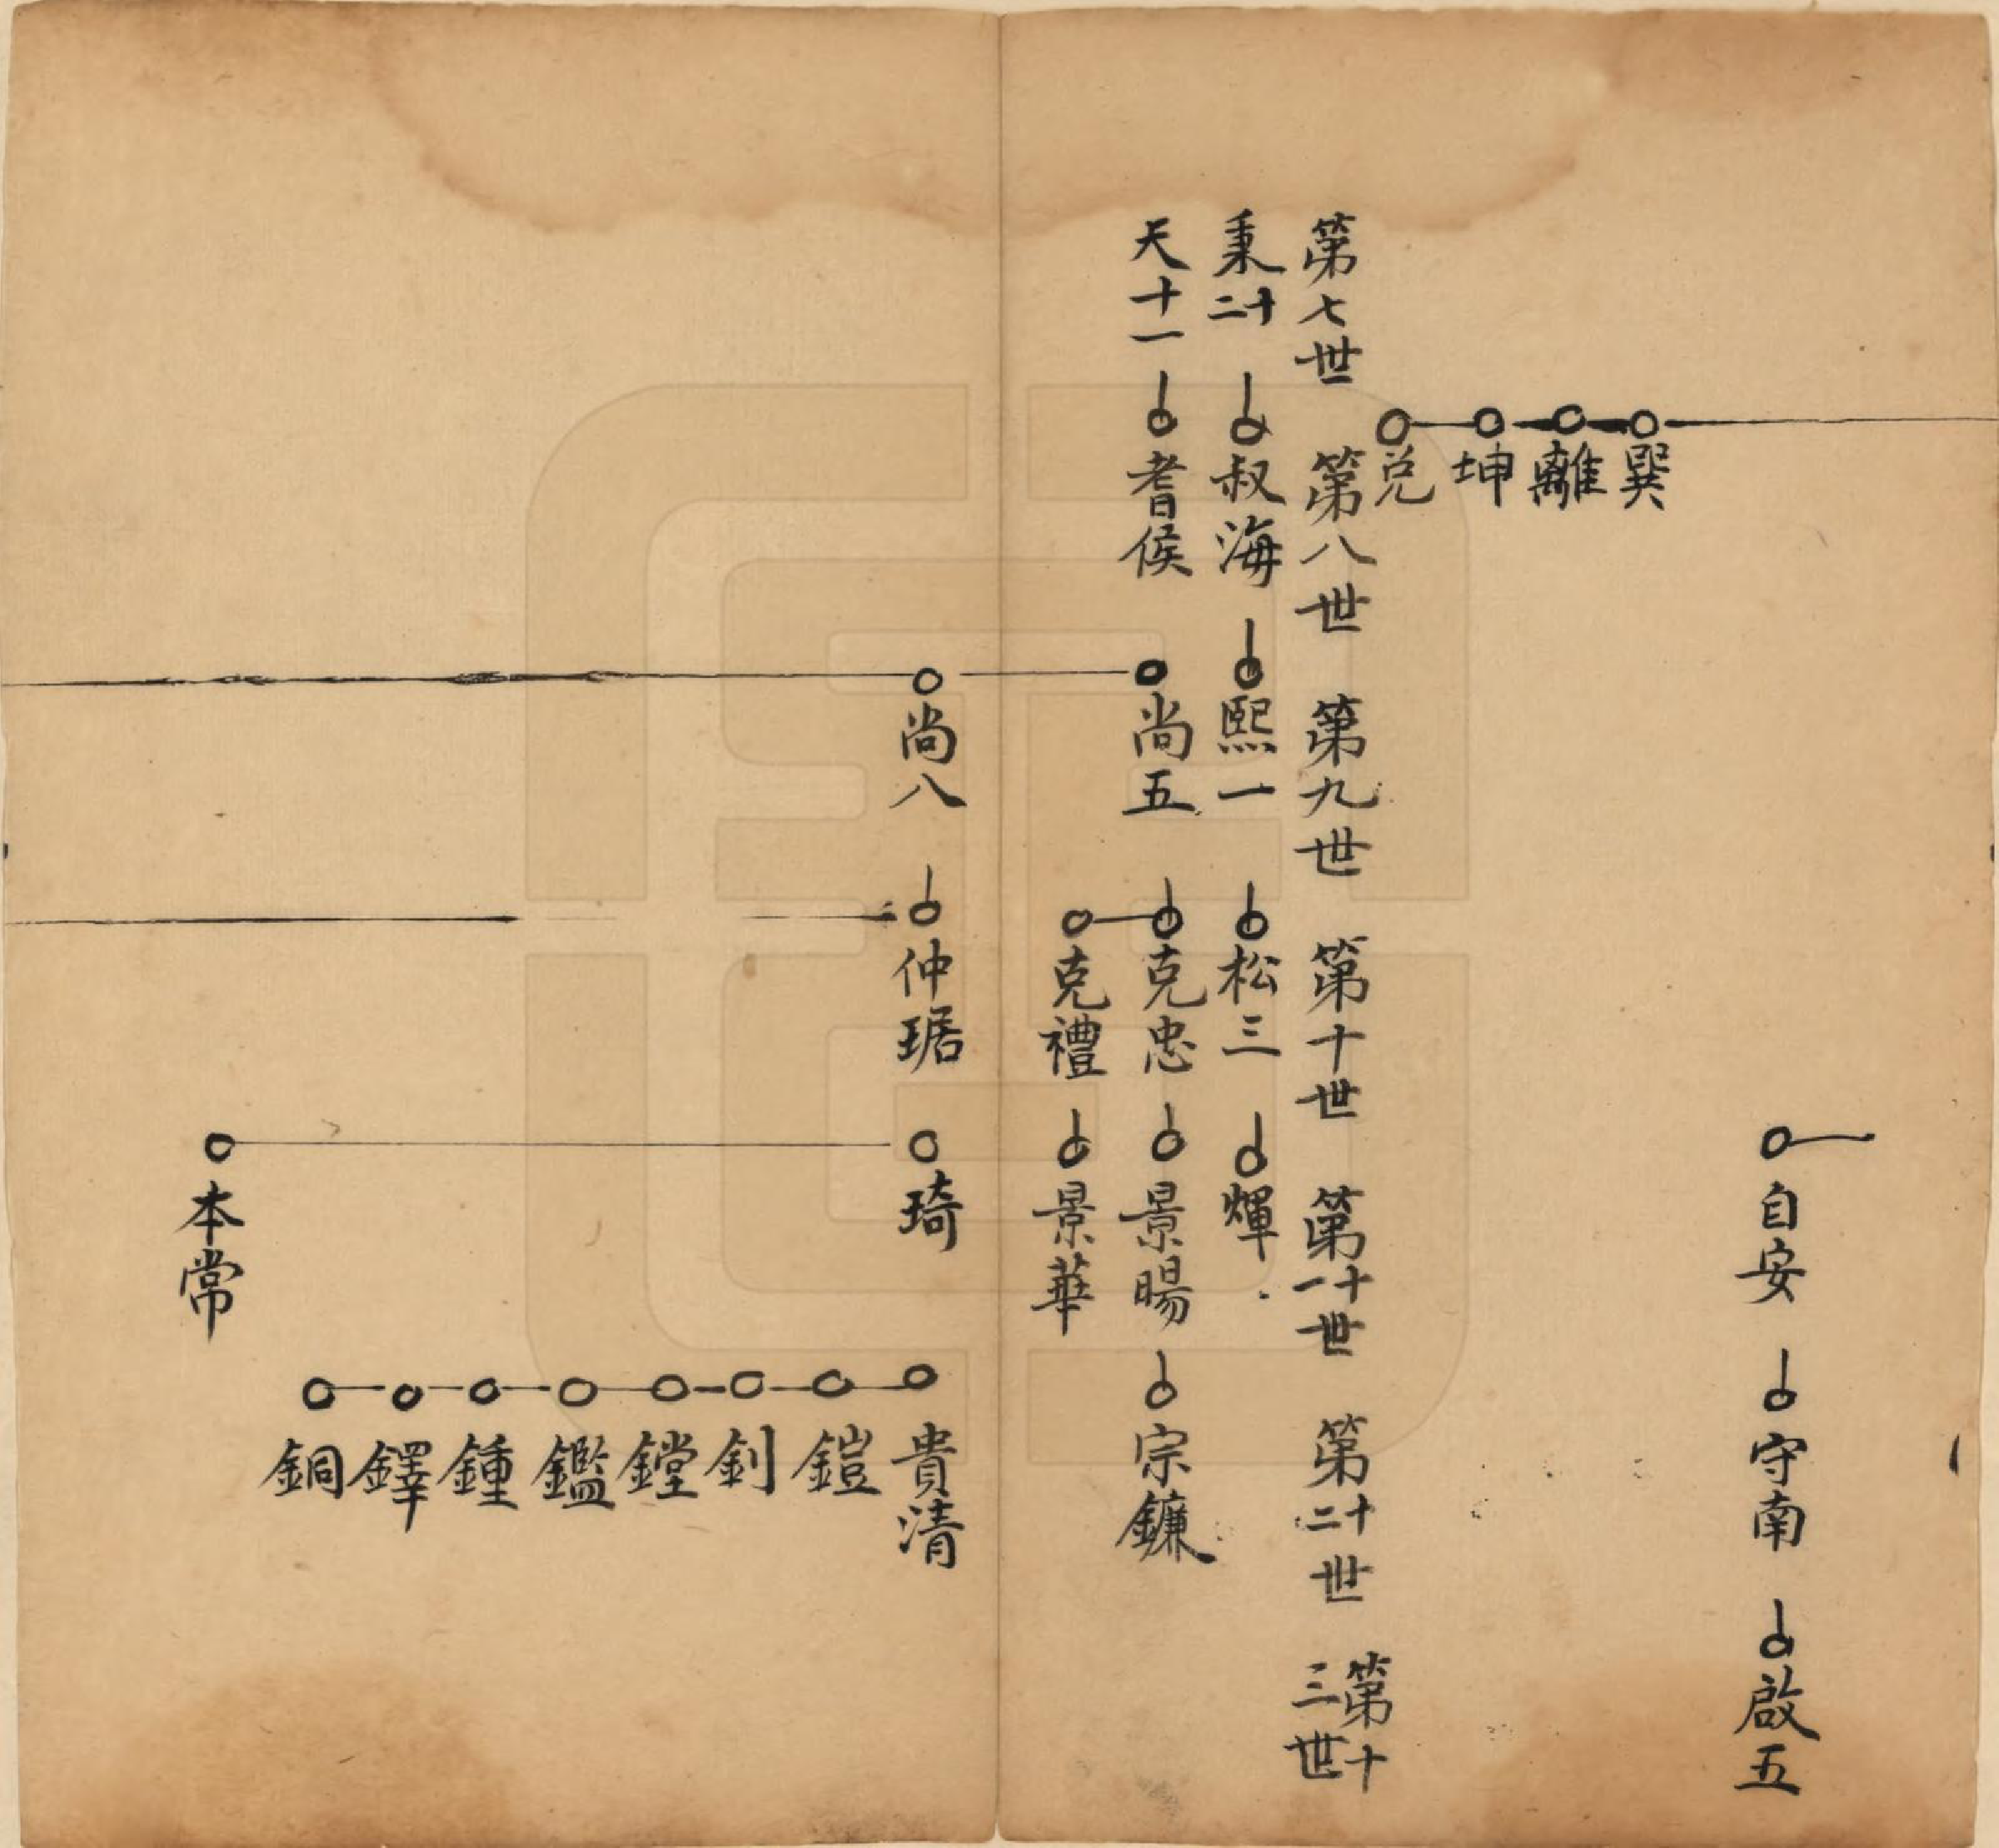 巽
離
坤
兑
自安
守南
啟五
第七世
第八世
第九世
第十世
第十一世
第十二世
第十三世
秉二十
叔海
熙一
松三
煇
天十一
耆侯
尚五
克忠
景暘
宗鐮
克禮
景華
尚八
仲琚
琦
貴清
鎧
釗
鏜
鑑
鍾
鐸
銅
本常